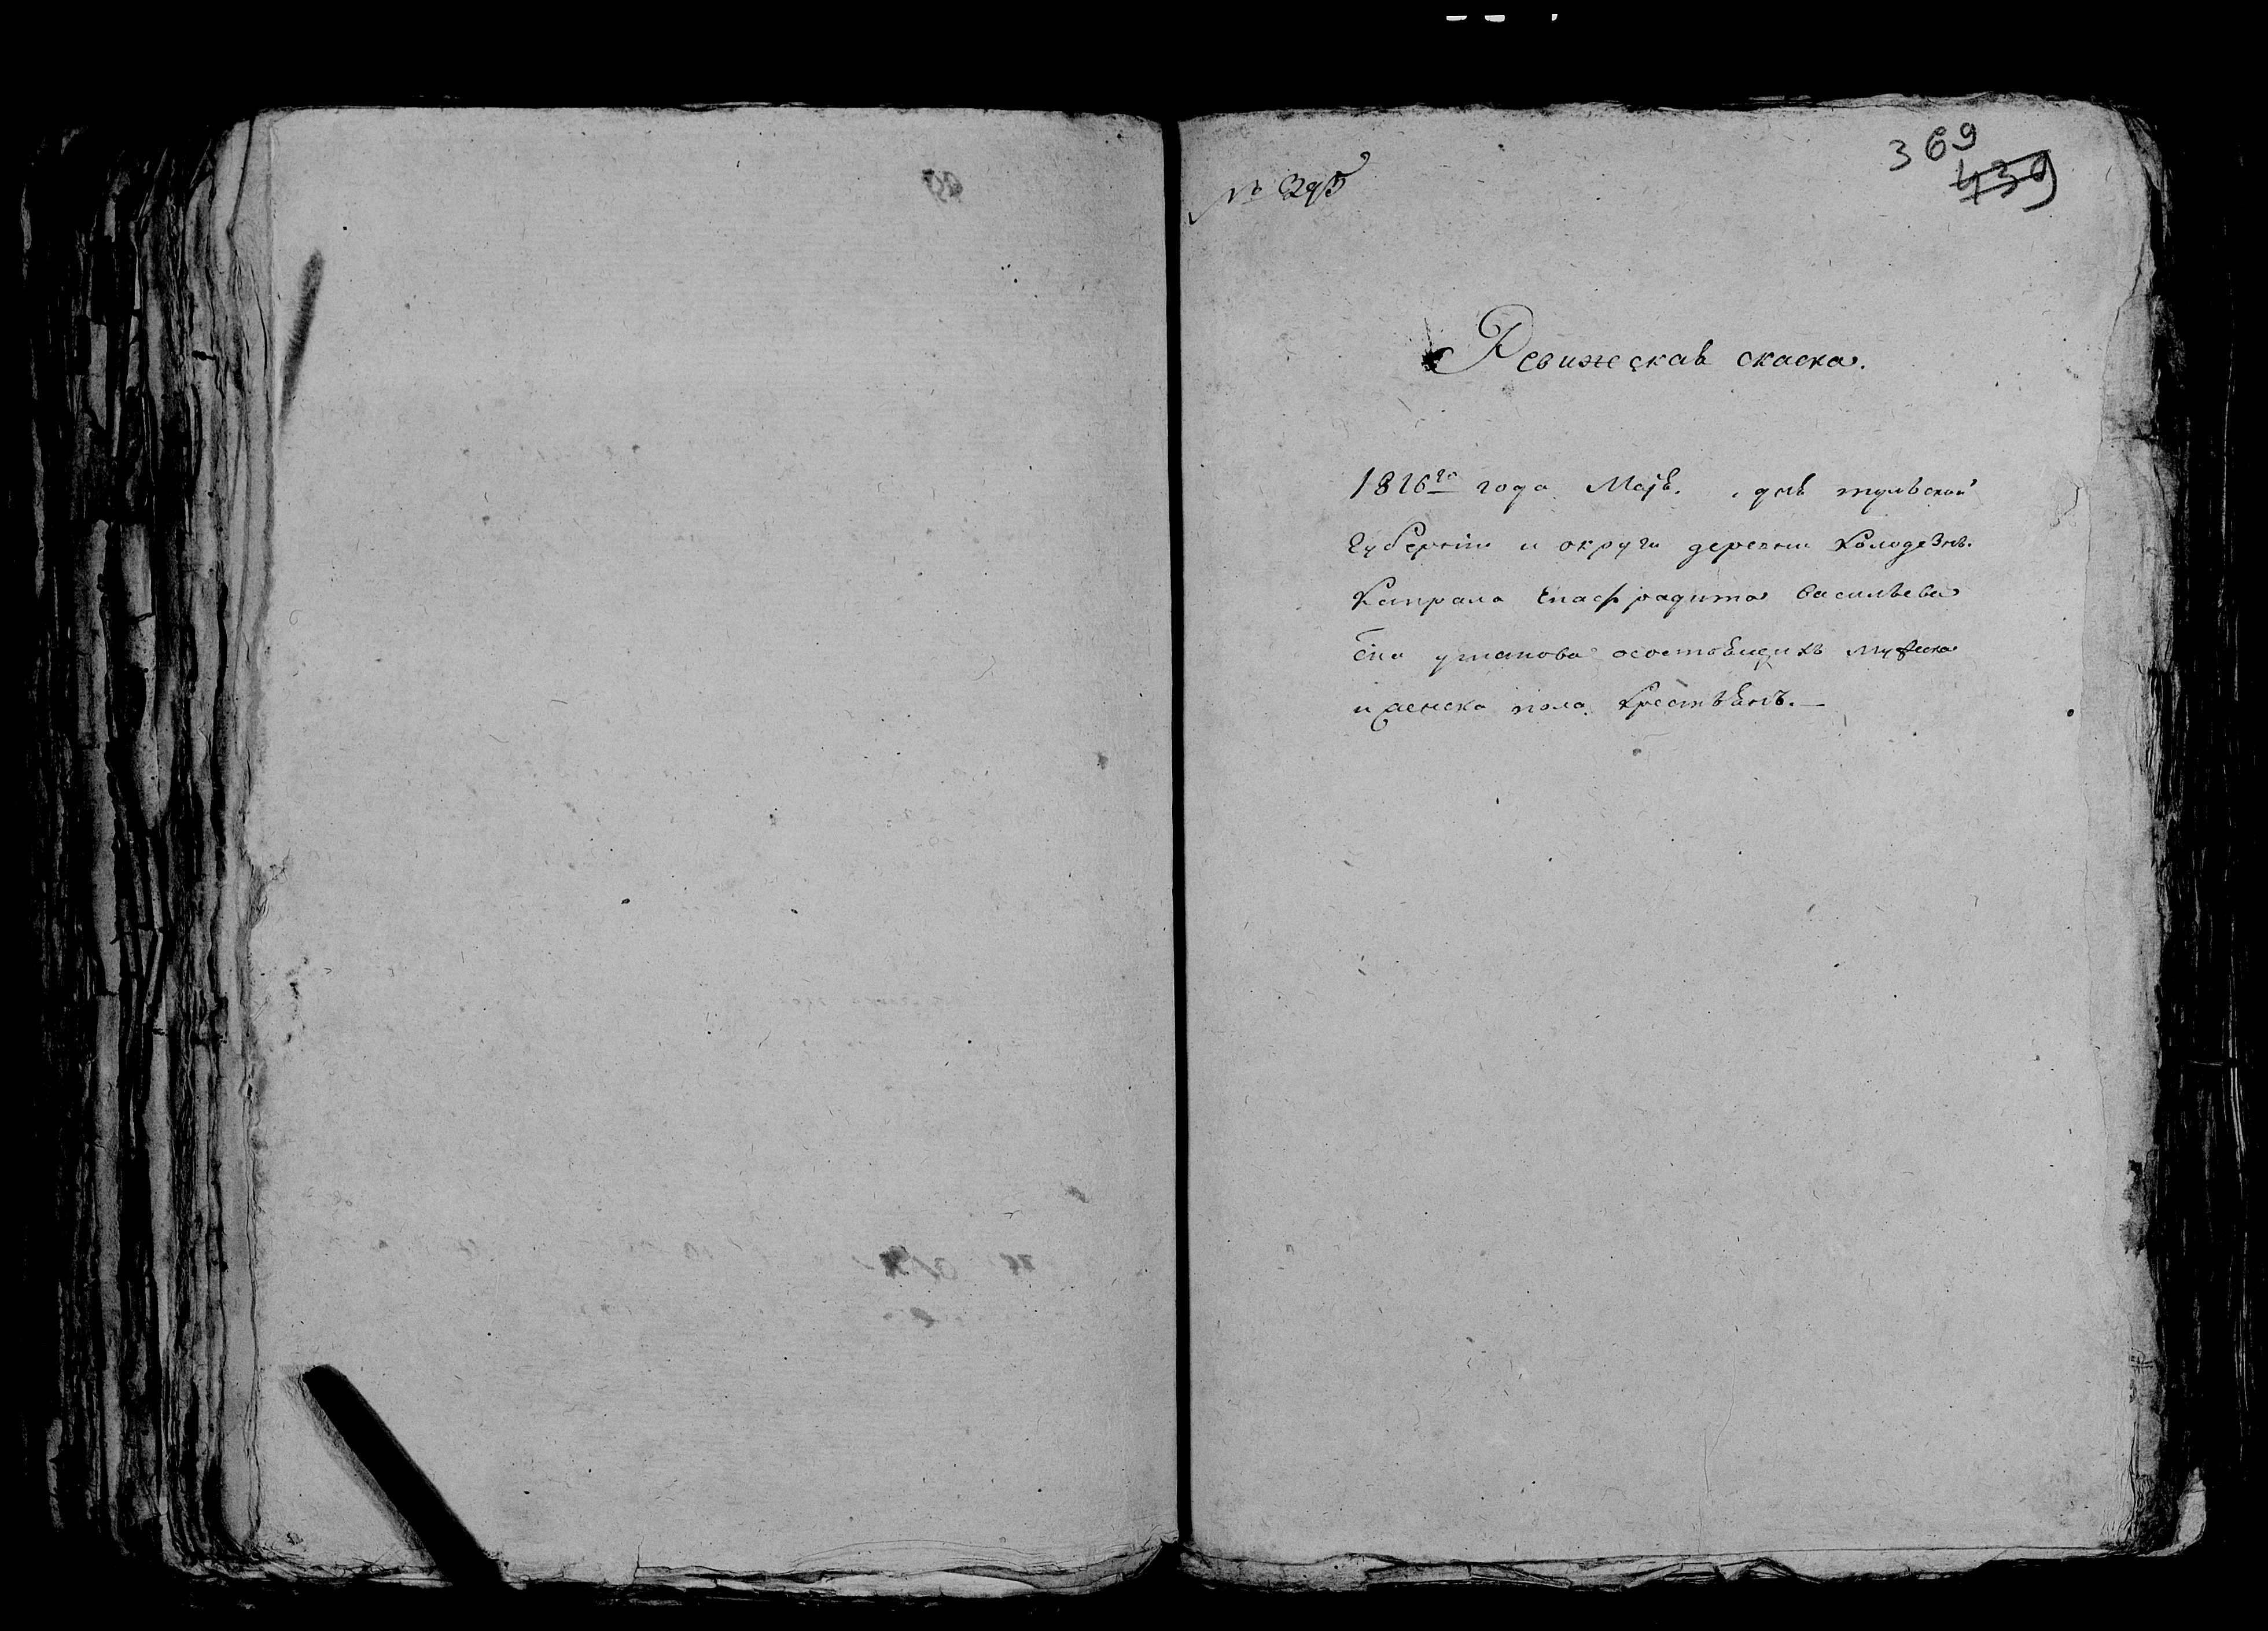 № 295
369
439
Ревижеская скаска.
1816го года Маія. дня тульской
Губерніи и округи деревни Колодезнь.
Капрала Епафрадита Васильева
сна уманова осостоящихъ мужеска
и женска пола крестьянъ. —